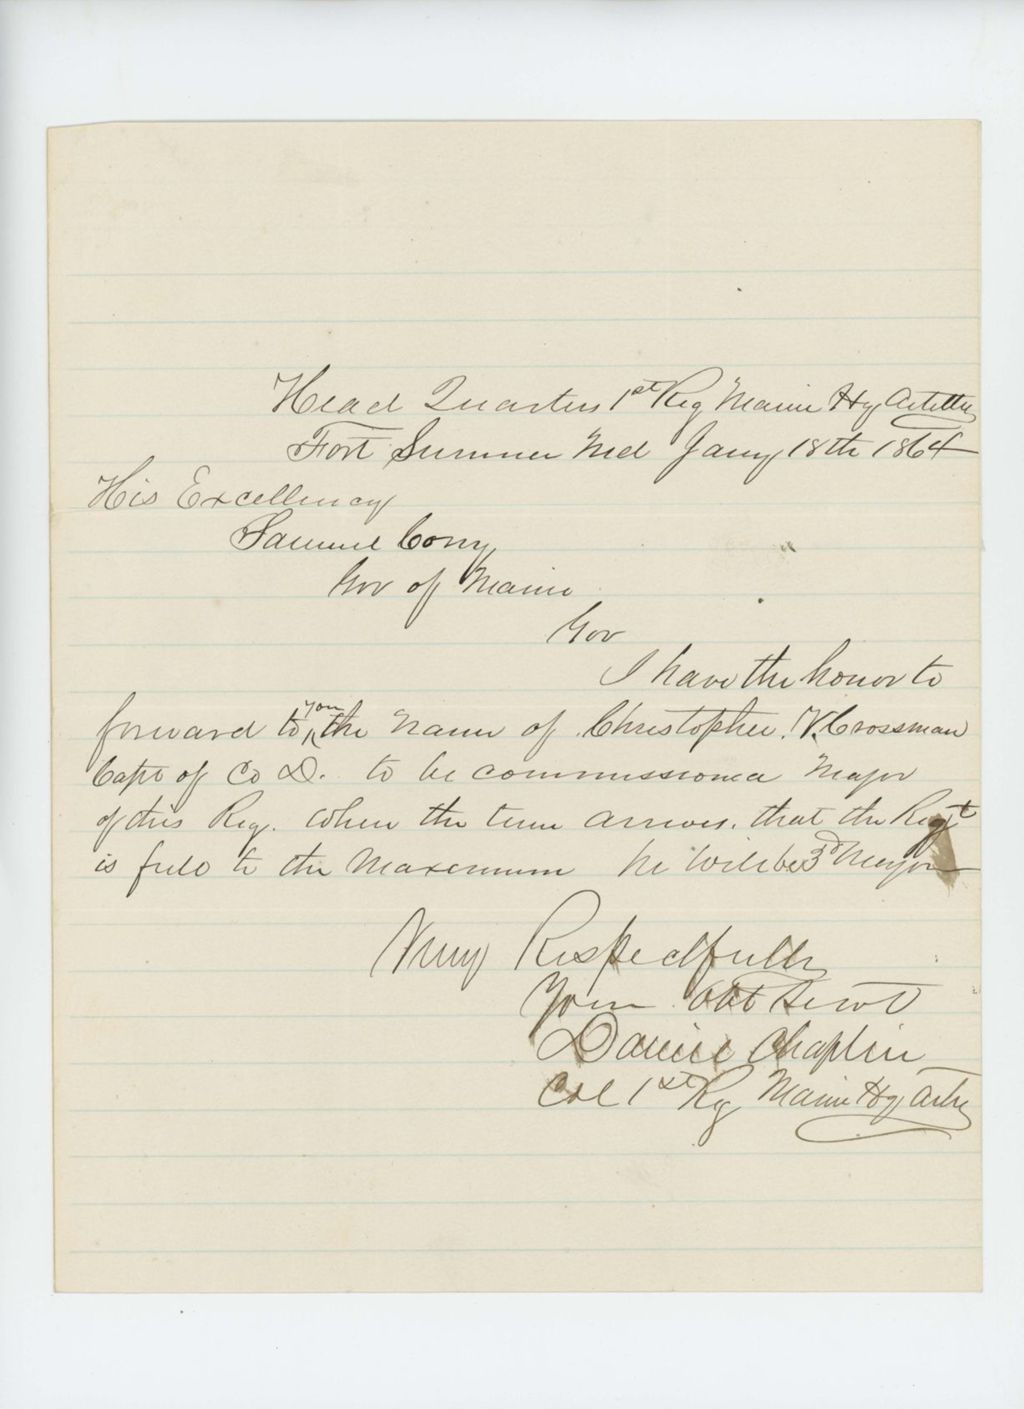 Head Quarters 1st Reg Maine Hy Artillery
Fort Sumner Md Jany 18th 1864
His Excellency
Samuel Cony
Gov of Maine
Gov
I have the honor to
forward to you the name of Christopher V. Crossman
Capt of Co D. to be commissioned Major
of this Reg. when the time arrives, that the Regt
is filld to the Maxemum he will be 3d Major
Very Respectfully
Your Obt Servt
Daniel Chaplin
Col 1st Reg Maine Hy Arty